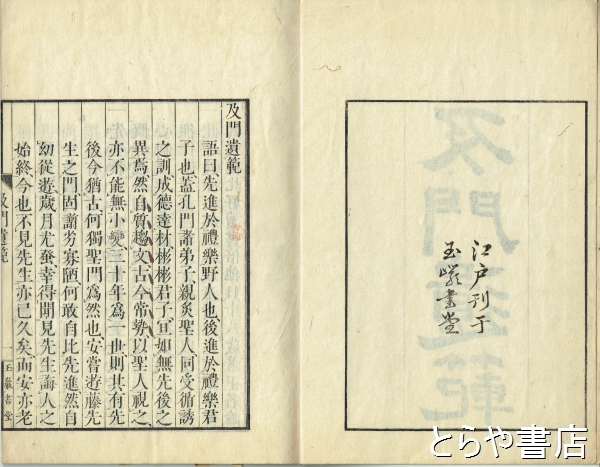 江戸刊于
玉巖書堂
及門遺範
語曰先進於禮樂野人也後進於禮樂君
子也蓋孔門諸弟子親炙聖人同受循誘
之訓成德達材彬彬君子宜如無先後之
異焉然自質趨文古今常勢以聖人視之
亦不能無小變三十年為一世則其有先
後今猶古何獨聖門為然也安嘗遊藤先
生之門固謭劣寡陋何敢自比先進然自
幼從遊歲月尤奄幸得聞見先生誨人之
始終今也不見先生亦已久矣而安亦老
及門遺範
一
玉巖書堂
とらや書店